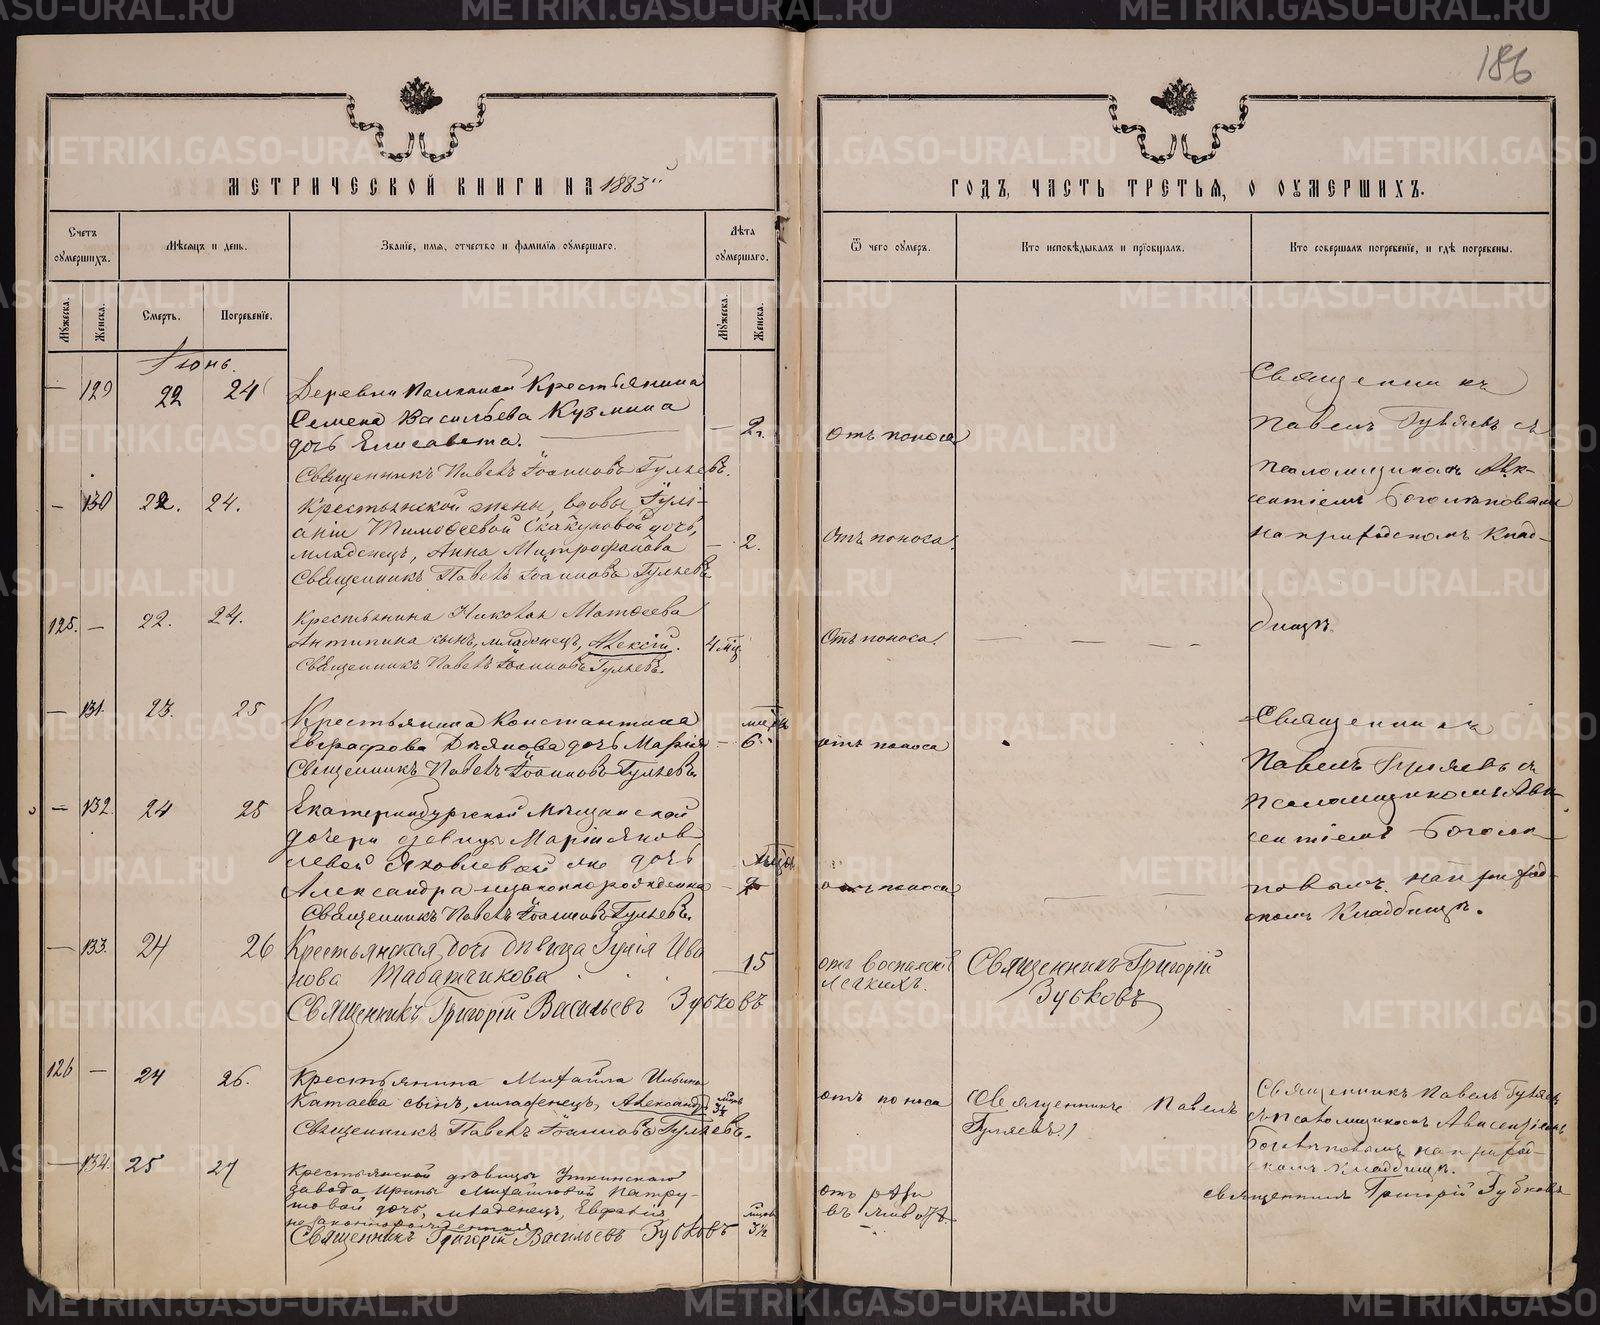 186
МЕТРИЧЕСКОЙ КНИГИ НА 1883й
ГОДЪ, ЧАСТЬ ТРЕТЬЯ, О ОУМЕРШИХЪ.
Счетъ оумершихъ.
Мѣсяцъ и день.
Званіе, имя, отчество и фамилія оумершаго.
Лѣта оумершаго.
Ѿ чего оумеръ.
Кто исповѣдывалъ и пріобщалъ.
Кто совершалъ погребеніе, и гдѣ погребены.
Мужеска.
Женска.
Смерть.
Погребеніе.
Мужеска.
Женска.
Іюнь.
— 129 22 24
Деревни Крестьянина
Семена Васильева Кузмина
дочь Елисавета.
— 2г.
отъ поноса
Священникъ Павелъ Іоанновъ Гуляевъ.
Священникъ
Павелъ Гуляевъ съ
псаломщикомъ Авк-
сентіемъ Боголѣповымъ
на приходскомъ клад-
бищѣ.
— 130 22. 24.
Крестьянской жены, вдовы, Іулі-
аніи Тимофеевой Скакуновой дочь,
младенецъ, Анна Митрофанова
— 2.
Отъ поноса.
Священникъ Павелъ Іоанновъ Гуляевъ.
125. — 22. 24.
Крестьянина Николая Матфеева
Антипина сынъ, младенецъ, Алексій.
4 мц
Отъ поноса.
Священникъ Павелъ Іоанновъ Гуляевъ.
— 131 23. 25
Крестьянина Константина
Евграфова дочь Марія
— 6
отъ поноса
Священникъ Павелъ Іоанновъ Гуляевъ.
Священникъ
Павелъ Гуляевъ съ
псаломщикомъ Авк-
сентіемъ Боголѣ-
повымъ. на приход-
скомъ кладбищѣ.
— 132. 24 28
Екатеринбургской мѣщанской
дочери дѣвицы Маріи Яков-
левой Яковлевой же дочь
Александра незаконнорожденна
отъ поноса
Священникъ Павелъ Іоанновъ Гуляевъ.
— 133. 24 26
Крестьянская дочь дѣвица Іулія Ива
нова Табатчикова
— 15
отъ воспаленія
легкихъ.
Священникъ Григорій
Зубковъ
Священникъ Григорій Васильевъ Зубковъ
126 — 24 26.
Крестьянина Михайла Ильина
Катаева сынъ, младенецъ, Александръ
отъ поноса
Священникъ Павелъ
Гуляевъ.
Священникъ Павелъ Іоанновъ Гуляевъ.
Священникъ Павелъ Гуляевъ
съ псаломщикомъ Авксентіемъ
Боголѣповымъ на приход-
скомъ кладбищѣ.
— 134. 25 27
Крестьянской дѣвицы Уткинскаго
завода Ирины Михайловой Патру-
шевой дочь, младенецъ, Евфалія
незаконнорожденная
3½
отъ рѣзи
въ животѣ.
Священникъ Григорій Васильевъ Зубковъ
Священникъ Григорій Зубковъ
METRIKI.GASO-URAL.RU